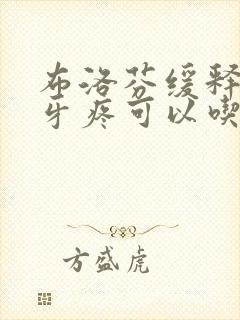 布洛芬缓释
牙疼可以喫
方盛虎